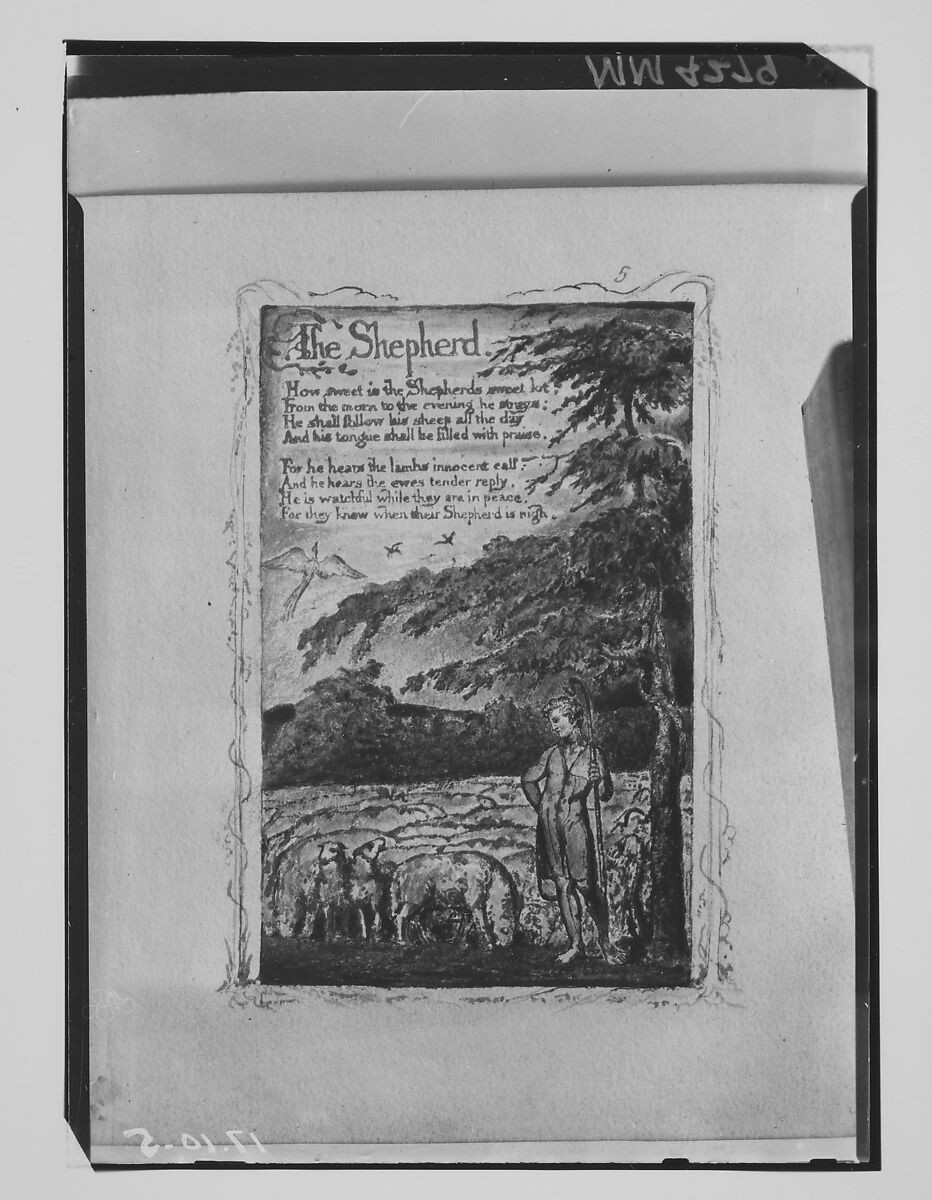 MM 4279
5
The Shepherd.
How sweet is the Shepherds sweet lot,
From the morn to the evening he strays:
He shall follow his sheep all the day
And his tongue shall be filled with praise.
For he hears the lambs innocent call.
And he hears the ewes tender reply.
He is watchful while they are in peace.
For they know when their Shepherd is nigh.
17.10-5